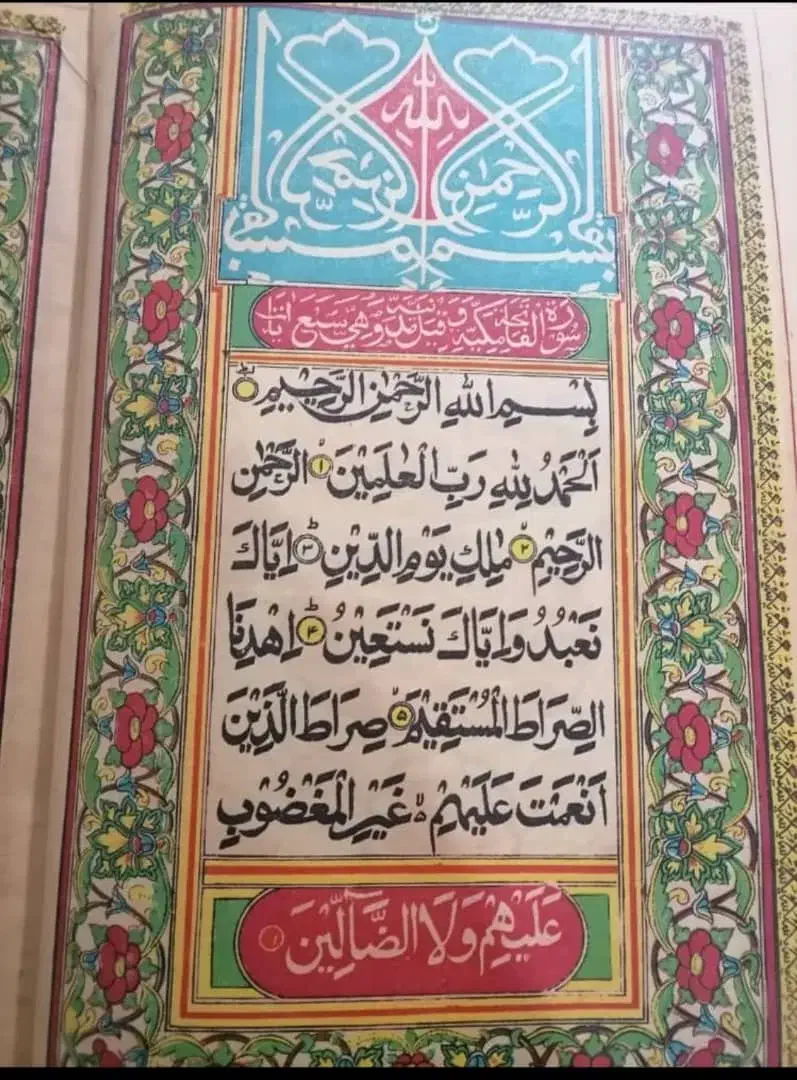 بِسْمِ اللهِ الرَّحْمٰنِ الرَّحِيْمِ
سُوْرَةُ الْفَاتِحَةِ مَكِّيَّةٌ وَقِيْلَ مَدَنِيَّةٌ وَهِيَ سَبْعُ اٰيَاتٍ
بِسْمِ اللهِ الرَّحْمٰنِ الرَّحِيْمِ
اَلْحَمْدُ لِلّٰهِ رَبِّ الْعٰلَمِيْنَ ۱ الرَّحْمٰنِ
الرَّحِيْمِ ۲ مٰلِكِ يَوْمِ الدِّيْنِ ۳ اِيَّاكَ
نَعْبُدُ وَاِيَّاكَ نَسْتَعِيْنُ ۴ اِهْدِنَا
الصِّرَاطَ الْمُسْتَقِيْمَ ۵ صِرَاطَ الَّذِيْنَ
اَنْعَمْتَ عَلَيْهِمْ غَيْرِ الْمَغْضُوْبِ
عَلَيْهِمْ وَلَا الضَّآلِّيْنَ